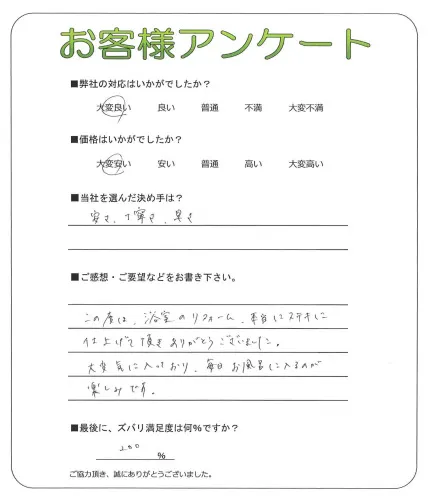 お客様アンケート
■弊社の対応はいかがでしたか?
大変良い 良い 普通 不満 大変不満
■価格はいかがでしたか?
大変安い 安い 普通 高い 大変高い
■当社を選んだ決め手は?
安さ、丁寧さ、早さ
■ご感想・ご要望などをお書き下さい。
この度は、浴室のリフォーム、本当にステキに
仕上げて頂きありがとうございました。
大変気に入っており、毎日お風呂に入るのが
楽しみです。
■最後に、ズバリ満足度は何%ですか?
200 %
ご協力頂き、誠にありがとうございました。